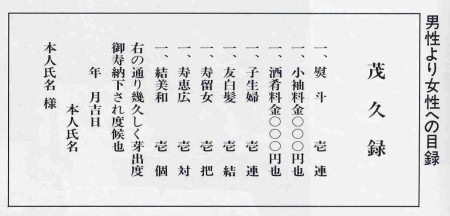 男性より女性への目録
茂久録
一、熨斗 壱連
一、小袖料金〇〇〇円也
一、酒肴料金〇〇〇円也
一、子生婦 壱連
一、友白髪 壱結
一、寿留女 壱把
一、寿恵広 壱対
一、結美和 壱個
右の通り幾久しく芽出度
御寿納下され度候也
年 月吉日
本人氏名
本人氏名 様